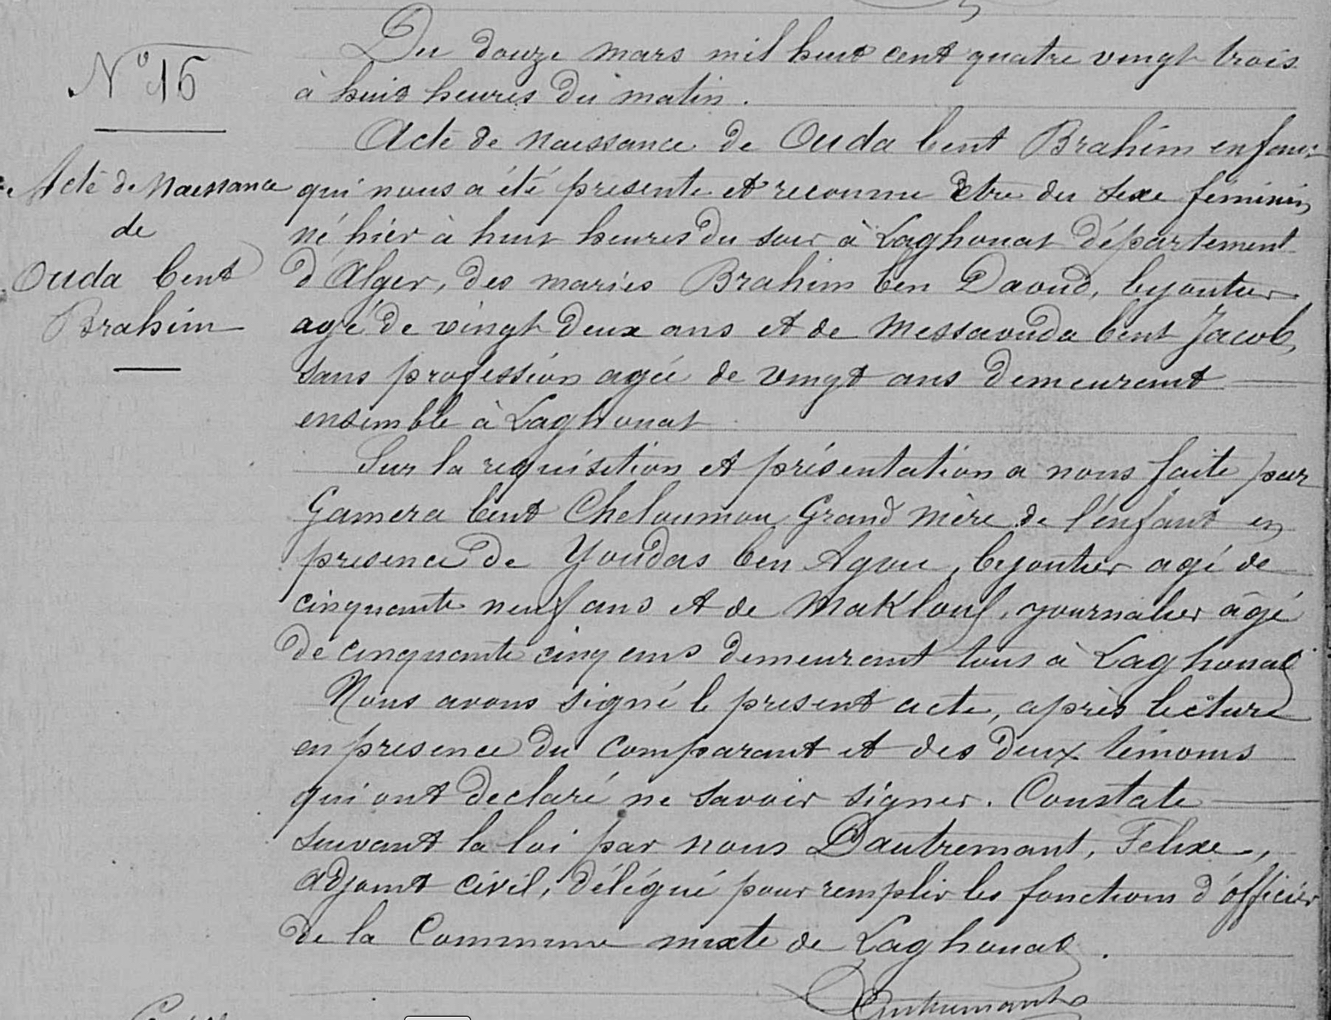 N° 16
Acte de Naissance
de
Ouda bent
Brahim
Du douze mars mil huit cent quatre vingt trois
à huit heures du matin.
Acte de naissance de Ouda bent Brahim enfant
qui nous a été présenté et reconnu être du sexe féminin,
né hier à huit heures du soir à Laghouat département
d'Alger, des mariés Brahim ben Daoud, byoutier
agé de vingt deux ans et de Messaouda bent Jacob,
sans profession agée de vingt ans demeurant
ensemble à Laghouat
Sur la requisition et présentation a nous faite par
Gamera bent Cheloumou Grand Mère de l'enfant en
presence de Youdas ben Agou, byoutier agé de
cinquante neuf ans et de Maklouf, journalier âgé
de cinquante cinq ans demeurant tous à Laghouat
Nous avons signé le present acte, après lecture
en presence du comparant et des deux témoins
qui ont declaré ne savoir signer. Constate
suivant la loi par nous Dautremant, Felixe,
adjoint civil, délégué pour remplir les fonctions d'officier
de la Commune mixte de Laghouat.
Dautremant